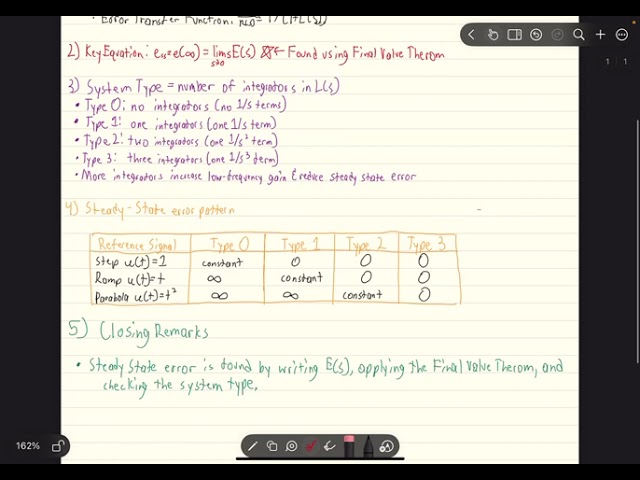 • Error Transfer Function: = 1/(1+L(s))
2) Key Equation: ess=e(∞) = lim sE(s) ← Found using Final Value Therom
s→0
3) System Type = number of integrators in L(s)
• Type 0: no integrators (no 1/s terms)
• Type 1: one integrators (one 1/s term)
• Type 2: two integrators (one 1/s² term)
• Type 3: three integrators (one 1/s³ term)
• More integrators increase low-frequency gain & reduce steady state error
4) Steady-State error pattern
Reference Signal Type 0 Type 1 Type 2 Type 3
Step u(t)=1 constant 0 0 0
Ramp u(t)=t ∞ constant 0 0
Parabola u(t)=t² ∞ ∞ constant 0
5) Closing Remarks
• Steady State error is found by writing E(s), applying the Final Value Therom, and
checking the system type.
1 | 1
162%